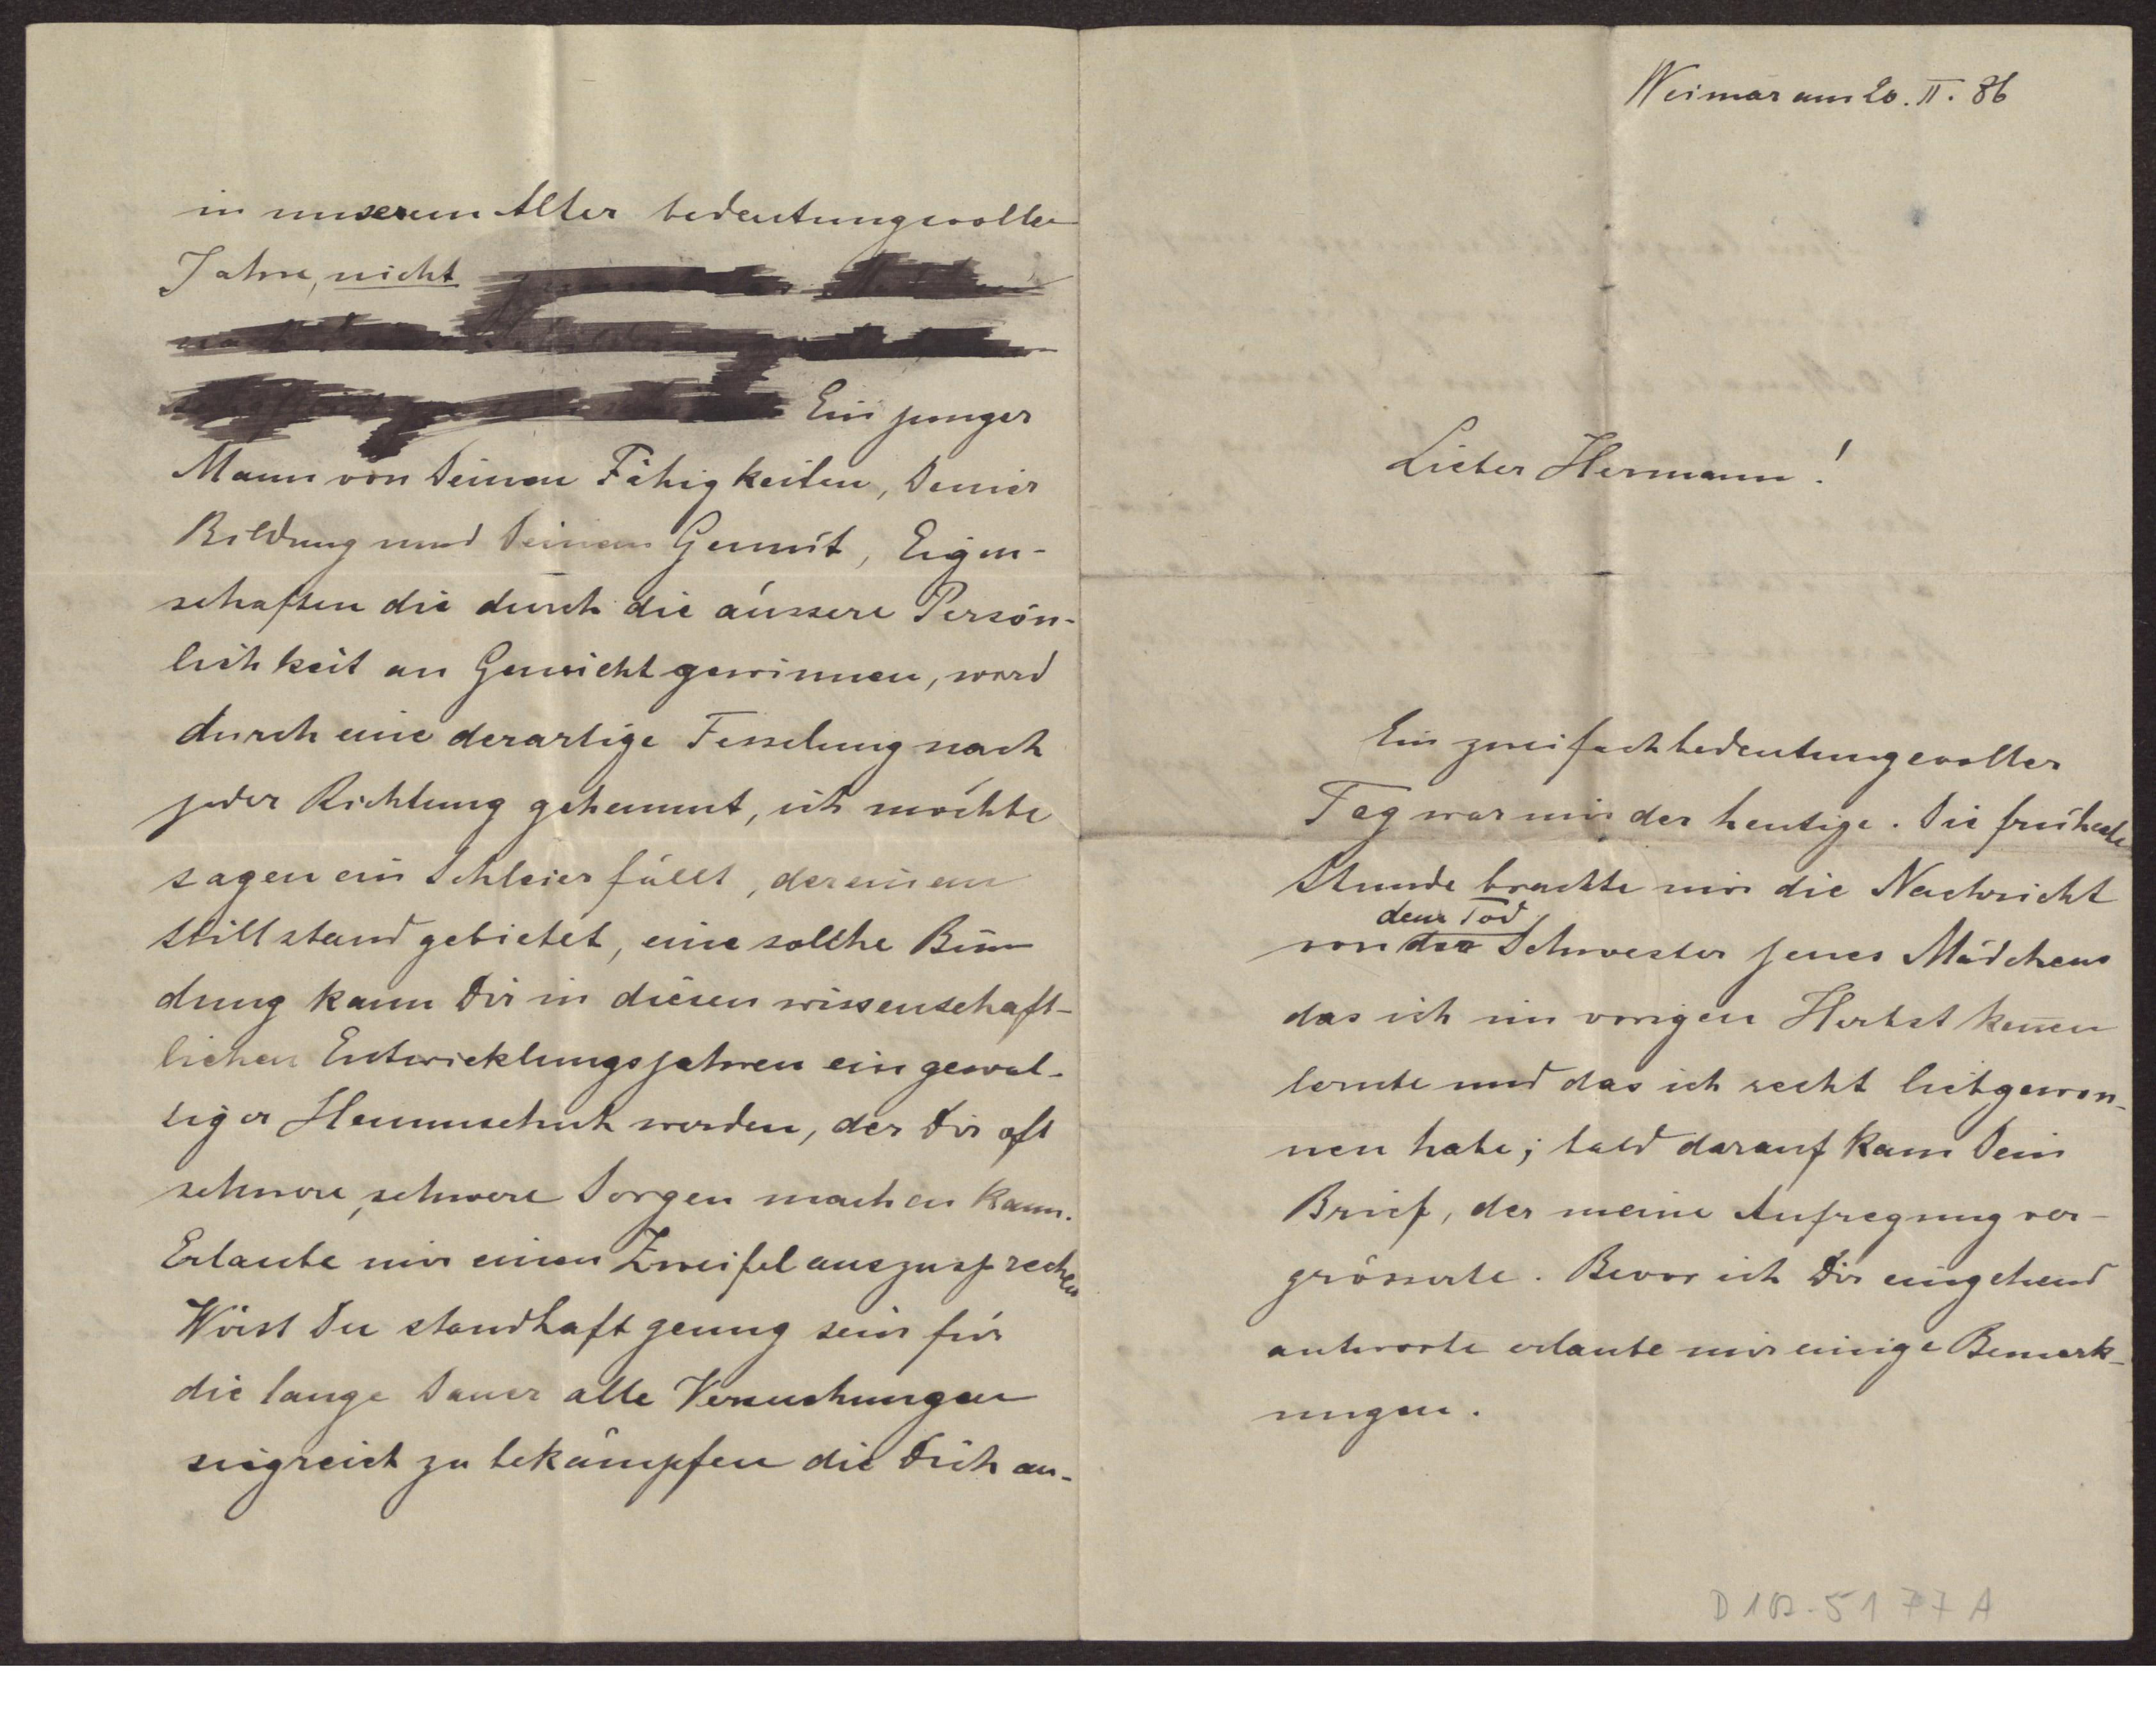 Weimar am 20. II. 86
Lieber Hermann!
Ein zweifach bedeutungsvoller
Tag war mir der heutige. Die früheste
Stunde brachte mir die Nachricht
dem Tod
von der Schwester jenes Mädchens
das ich im vorigen Herbst kennen
lernte und das ich recht liebgewon-
nen habe; bald darauf kam Dein
Brief, der meine Aufregung ver-
grösserte. Bevor ich Dir eingehend
antworte erlaube mir einige Bemerk-
ungen.
D 102.5177 A
in unserem Alter bedeutungsvolle
Jahre, nicht
Ein junger
Mann von Deinen Fähigkeiten, Deiner
Bildung und Deinem Gemüt, Eigen-
schaften die durch die äussere Persön-
lichkeit an Gewicht gewinnen, ward
durch eine derartige Fesselung nach
jeder Richtung gehemmt, ich möchte
sagen ein Schleier fällt, der einen
Stillstand gebietet, eine solche Bin
dung kann Dir in diesen wissenschaft-
lichen Entwicklungsjahren ein gewal-
tiger Hemmschuh werden, der Dir oft
schwere, schwere Sorgen machen kann.
Erlaube mir einen Zweifel auszusprechen
Wirst Du standhaft genug sein für
die lange Dauer alle Versuchungen
siegreich zu bekämpfen die Dich an-